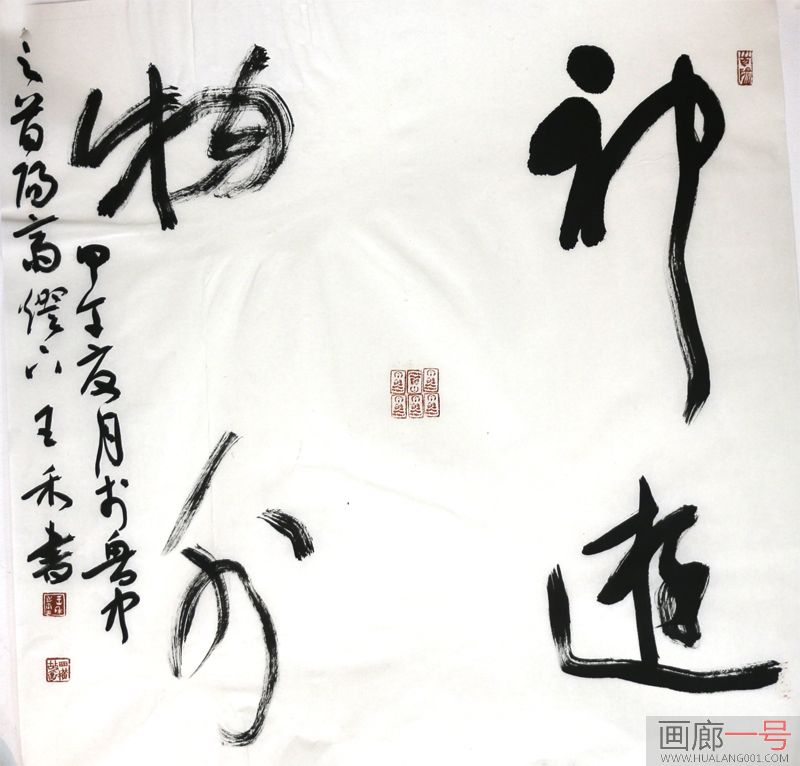 神遊
物外
甲午夏月於魯中
之首陽齋燈下王禾書
画廊一号
WWW.HUALANG001.COM